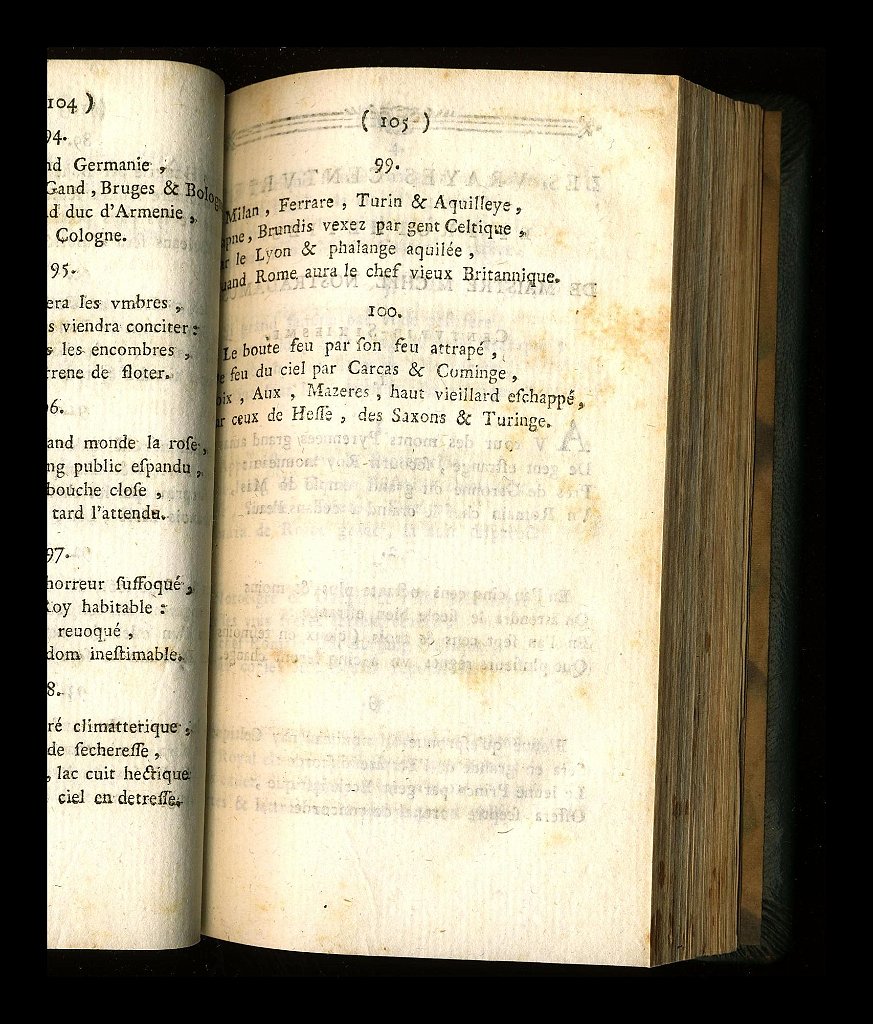 104 )
94.
nd Germanie ,
Gand , Bruges & Bologne
d duc d'Armenie ,
Cologne.
95.
era ſes vmbres ,
s viendra conciter :
s les encombres ,
rrene de floter.
96.
and monde la roſe ,
ng public eſpandu ,
bouche cloſe ,
tard l'attendu.
97.
horreur ſuffoqué ,
Roy habitable :
reuoqué ,
dom ineſtimable.
8.
ré climatterique ,
de ſechereſſe ,
, lac cuit hectique
ciel en detreſſe.
( 105 )
99.
Milan , Ferrare , Turin & Aquilleye ,
apne , Brundis vexez par gent Celtique ,
ar le Lyon & phalange aquilée ,
uand Rome aura le chef vieux Britannique.
100.
Le boute feu par ſon feu attrapé ,
e feu du ciel par Carcas & Cominge ,
oix , Aux , Mazeres , haut vieillard eſchappé ,
ar ceux de Heſſe , des Saxons & Turinge.